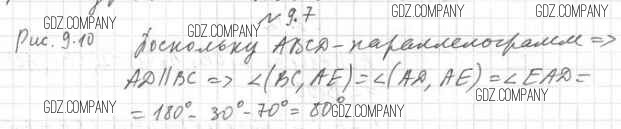 № 9.7
GDZ.COMPANY GDZ.COMPANY GDZ.COMPANY
Рис. 9.10 Поскольку ABCD - параллелограмм =>
AD || BC => ∠(BC, AE) = ∠(AD, AE) = ∠EAD =
GDZ.COMPANY GDZ.COMPANY
= 180° - 30° - 70° = 80°
GDZ.COMPANY